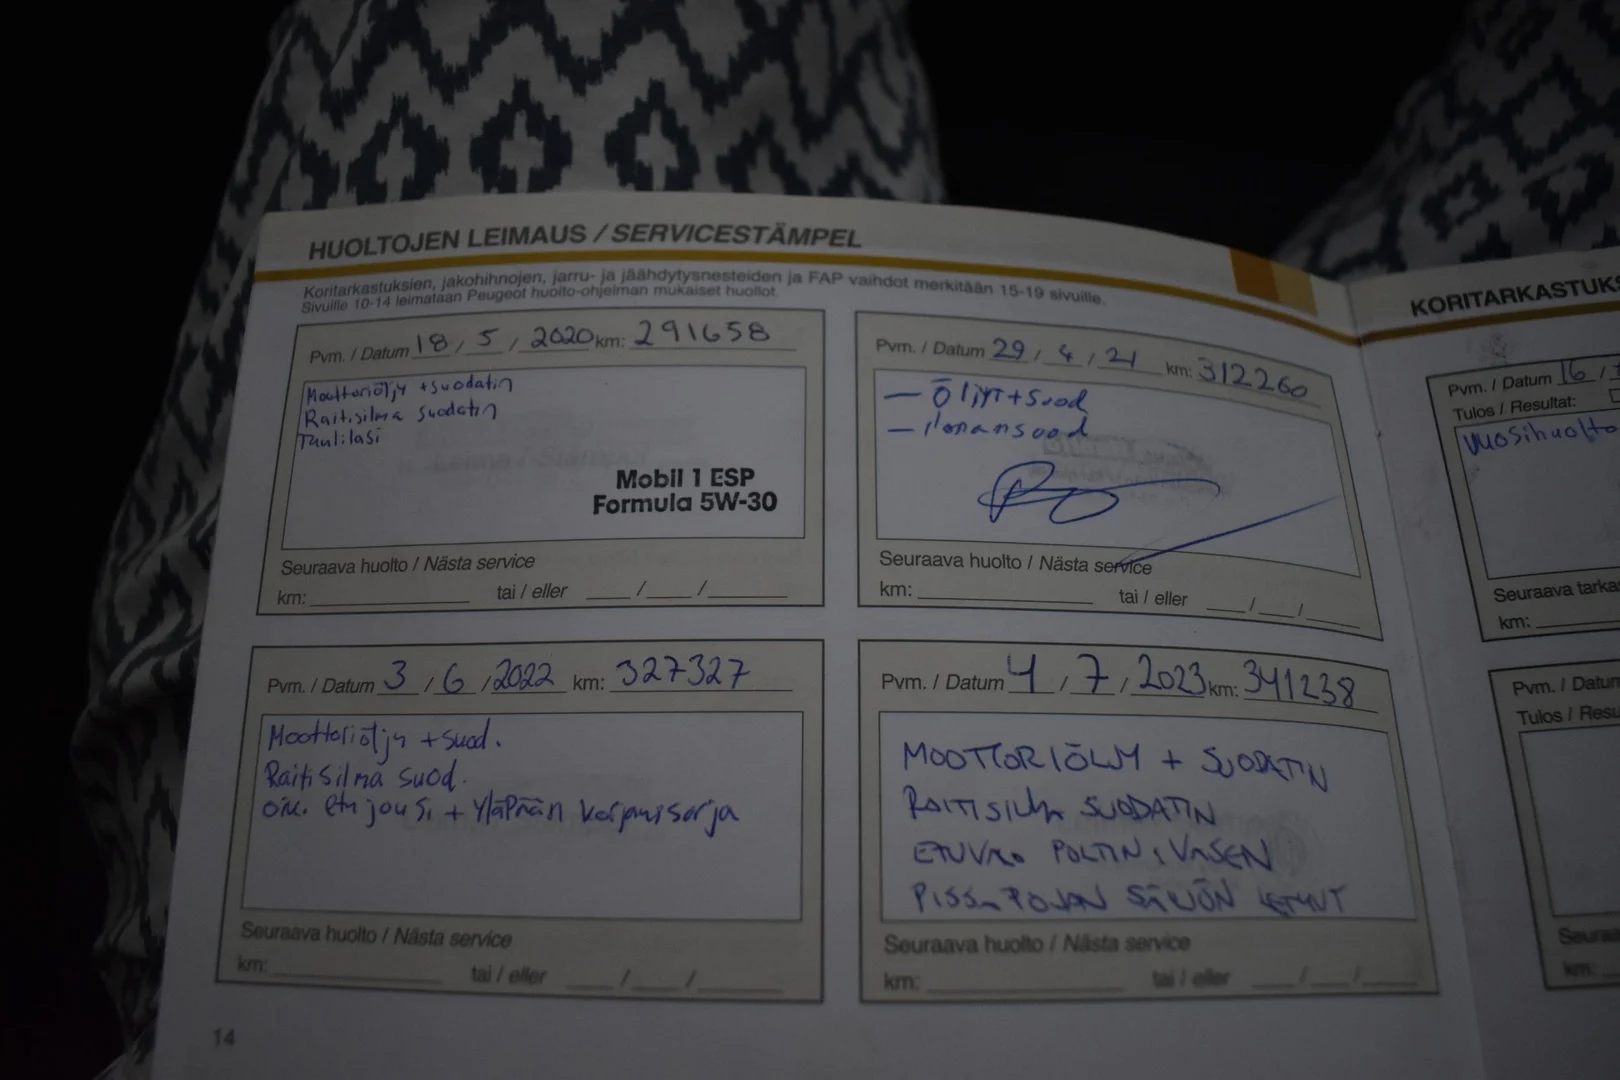 HUOLTOJEN LEIMAUS / SERVICESTÄMPEL
Koritarkastuksien, jakohihnojen, jarru- ja jäähdytysnesteiden ja FAP vaihdot merkitään 15-19 sivuille.
Sivuille 10-14 leimataan Peugeot huolto-ohjelman mukaiset huollot.
Pvm. / Datum 18 / 5 / 2020 km: 291658
Moottoriöljy + suodatin
Raitisilma suodatin
Tuulilasi
Mobil 1 ESP
Formula 5W-30
Seuraava huolto / Nästa service
km: tai / eller / /
Pvm. / Datum 29 / 4 / 21 km: 312260
— Öljyt + Suod
— ilmansuod
Seuraava huolto / Nästa service
km: tai / eller / /
Pvm. / Datum 3 / 6 / 2022 km: 327327
Moottoriöljy + suod.
Raitisilma suod.
oik. etu jousi + yläpään korjaussarja
Seuraava huolto / Nästa service
km: tai / eller / /
Pvm. / Datum 4 / 7 / 2023 km: 341238
MOOTTORIÖLJY + SUODATIN
RAITISILMA SUODATIN
ETUVALO POLTIN, VASEN
PISSAPOJAN SÄILIÖN
Seuraava huolto / Nästa service
km: tai / eller / /
14
KORITARKASTUKS
Pvm. / Datum 16 /
Tulos / Resultat:
Vuosihuolto
Seuraava tarka
km:
Pvm. / Datum
Tulos / Resu
Seuraa
km: